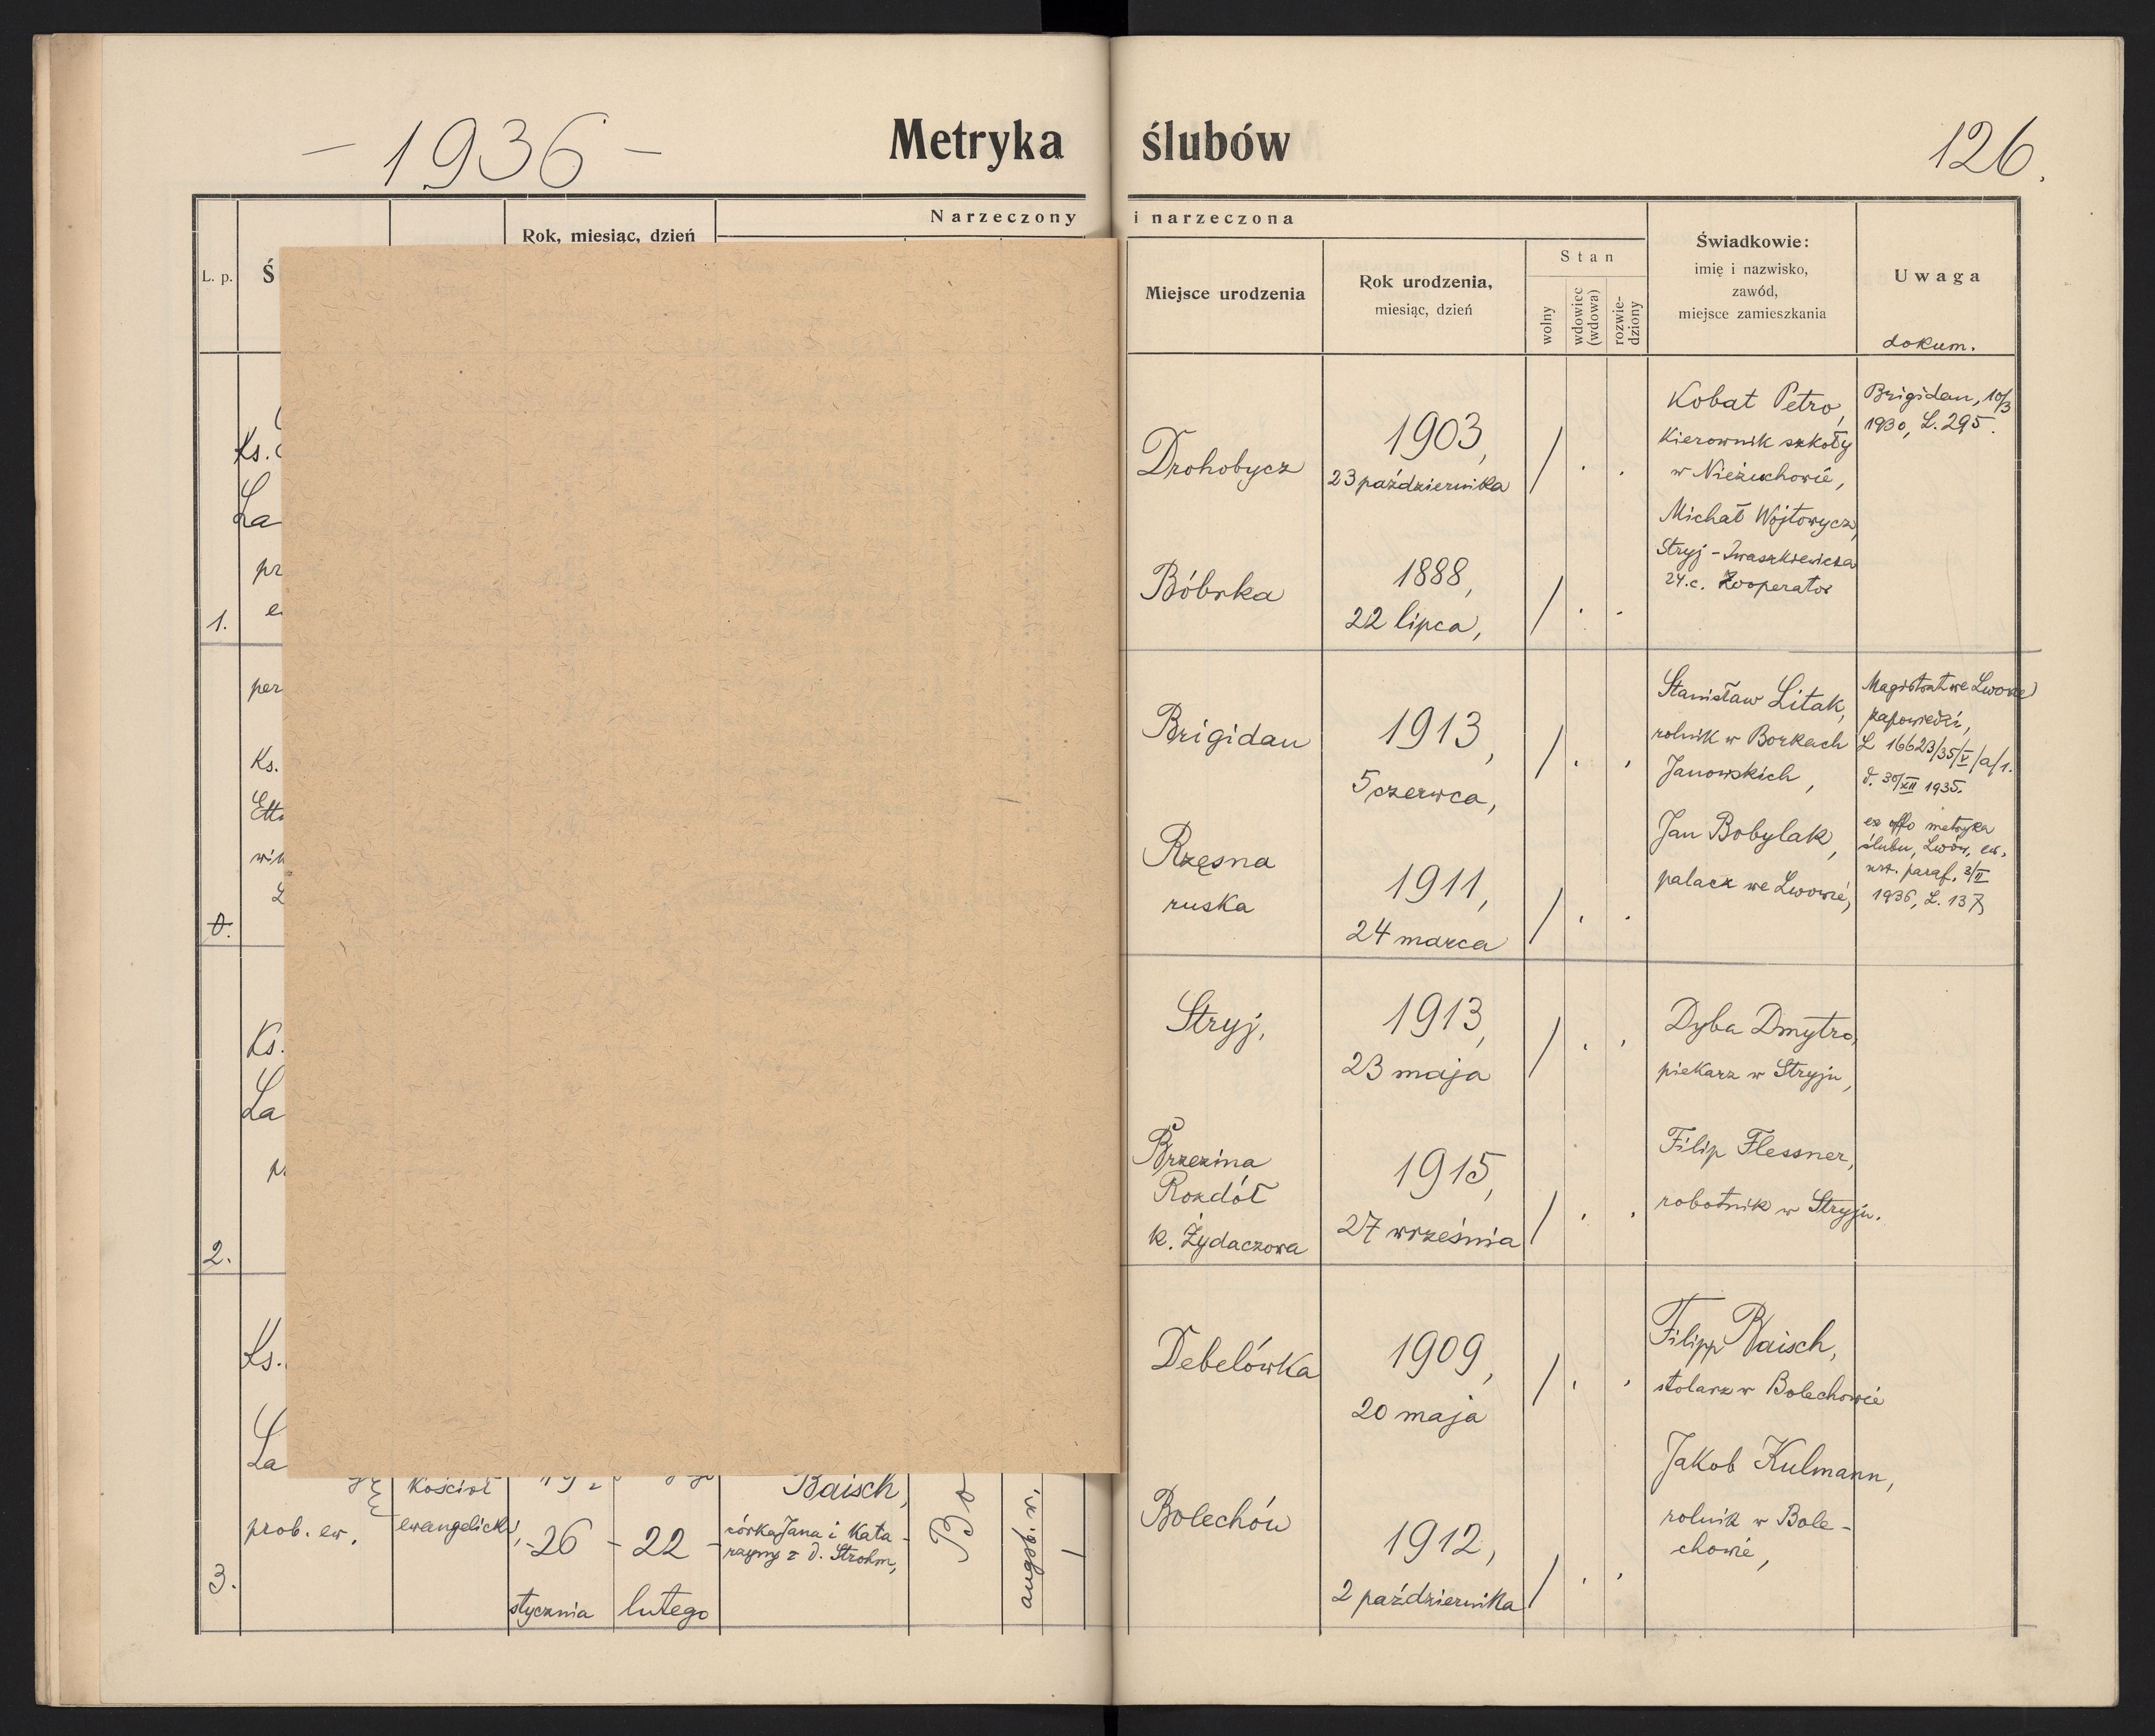 - 1936 -
Metryka ślubów
126.
L. p.
Rok, miesiąc, dzień
Narzeczony i narzeczona
Miejsce urodzenia
Rok urodzenia,
miesiąc, dzień
Stan
wolny
wdowiec
(wdowa)
rozwie-
dziony
Świadkowie:
imię i nazwisko,
zawód,
miejsce zamieszkania
Uwaga
dokum.
1.
Ks.
La
pr
Drohobycz
1903,
23 października
Bóbrka
1888,
22 lipca,
Kobat Petro,
Kierownik szkoły
w Nieżuchowie,
Michał Wójtowycz,
Stryj - Iwaszkiewicza
24.c. Kooperator
Brigidau, 10/3
1930, L. 295.
0.
per
Ks.
Brigidau
1913,
5 czerwca,
Rzęsna
ruska
1911,
24 marca
Stanisław Litak,
rolnik w Borkach
Janowskich,
Jan Bobylak,
palacz we Lwowie,
Magistrat we Lwowie
zapowiedzi,
L 16623/35/V/a/1.
d. 30/XII 1935.
ex offo metryka
ślubu, Lwów, ew.
urz. paraf. 3/II
1936, L. 137
2.
Ks.
La
Stryj,
1913,
23 maja
Brzezina
Rozdół
k. Żydaczowa
1915,
27 września
Dyba Dmytro,
piekarz w Stryju,
Filip Flessner,
robotnik w Stryju.
3.
Ks.
La
prob. ew.
Kościół
ewangelicki,
- 26 - 22 -
stycznia lutego
Baisch,
córka Jana i Kata-
rzyny z d. Strohm,
Bo
augsb. w.
Debelówka
1909,
20 maja
Bolechów
1912,
2 października
Filipp Baisch,
stolarz w Bolechowie
Jakob Kulmann,
rolnik w Bole-
chowie,